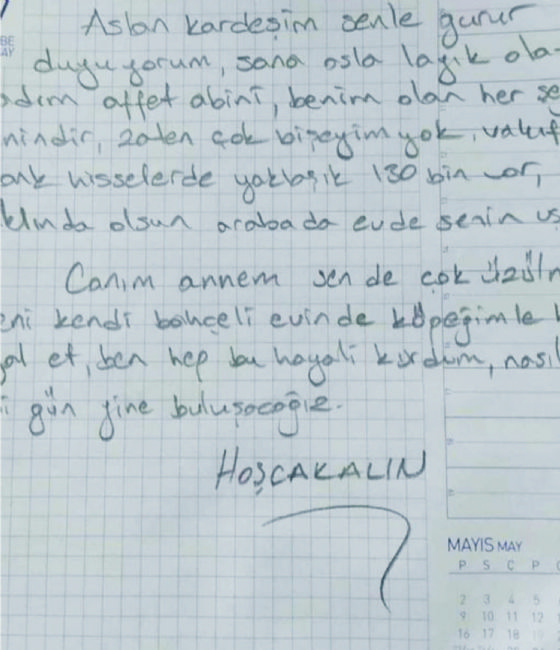 BE
AY
Aslan kardeşim senle gurur
duyuyorum, sana asla layık ola-
dım affet abini, benim olan her şe
nindir, zaten çok bişeyim yok, vakıf
ank hisselerde yaklaşık 130 bin var,
klında olsun arabada evde senin
Canım annem sen de çok üzülm
eni kendi bahçeli evinde köpeğimle
al et, ben hep bu hayali kurdum, nasıl
i gün yine buluşacağız.
HOŞCAKALIN
MAYIS MAY
P S Ç P
2 3 4 5
9 10 11 12
16 17 18 19